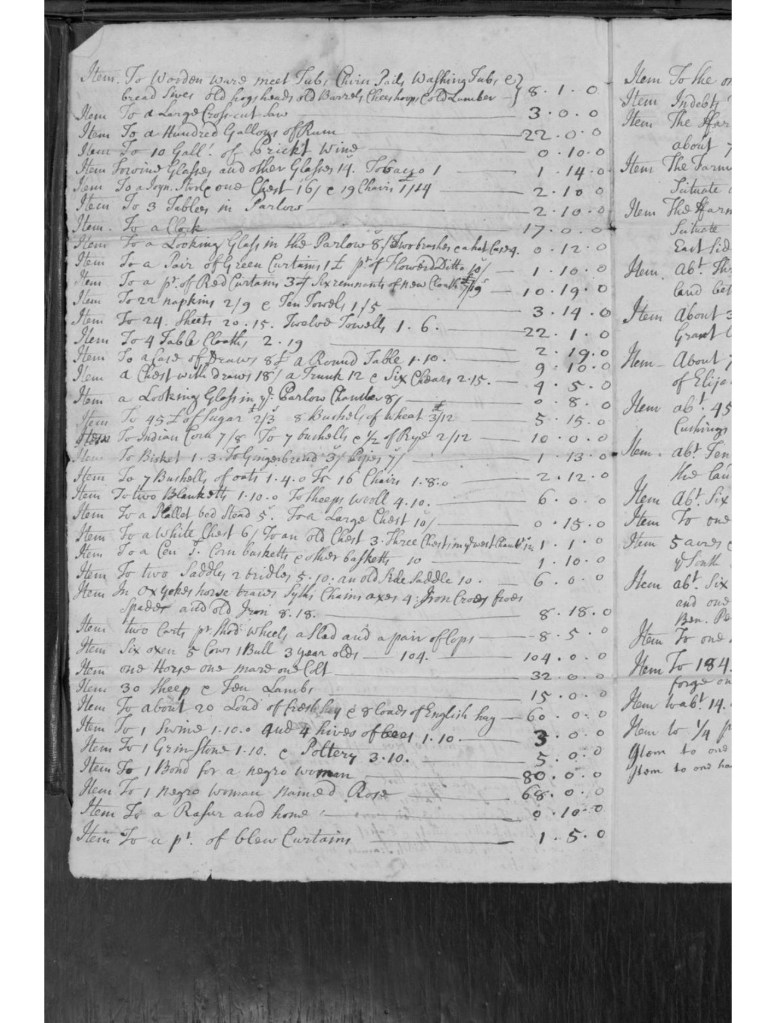 Item To Wooden ware meet Tubs Churn Pails Washing Tubs &
bread Sives old hogsheads old Barrels Chershoops Cold Lumber 8 . 1 . 0
Item To a Large Cross-cut saw 3 . 0 . 0
Item To a Hundred Gallons of Rum 22 . 0 . 0
Item To 10 Gall: of Wine 0 . 10 . 0
Item To wine Glasses and other Glasses 14. Tobacco 1 1 . 14 . 0
Item To a Joyn. Stool & one Chest 16/ & 19 Chairs 1/14 2 . 10 . 0
Item To 3 Tables in Parlow 2 . 10 . 0
Item To a Clock 17 . 0 . 0
Item To a Looking Glass in the Parlow 8/ Two brushes & a hat Case 4. 0 . 12 . 0
Item To a Pair of Green Curtains 1£ pr of Flowered Ditto 10/ 1 . 10 . 0
Item To a pr. of Red Curtains 3£ Six remnants of new Cloath 10 . 19 . 0
Item To 22 napkins 2/9 & Ten Towels 1/5 3 . 14 . 0
Item To 24 Sheets 20 . 15. Twelve Towells 1 . 6. 22 . 1 . 0
Item To 4 Table Cloaths 2 . 19 2 . 19 . 0
Item To a Case of Draws 8£ a Round Table 1 . 10. 9 . 10 . 0
Item a Chest with draws 18/ a Trunk 12 & Six Chears 2 . 15. 4 . 5 . 0
Item a Looking Glass in ye. Parlow Chamber 8/ 0 . 8 . 0
Item To 45£ of Sugar 2/3 8 Bushels of wheat 3/12 5 . 15 . 0
Item To Indian Corn 7/8 To 7 bushells & 1/2 of Rye 2/12 10 . 0 . 0
Item To Bisket 1 . 3. To Gingerbread 3/ Pipes 7/ 1 . 13 . 0
Item To 7 Bushells of oats 1 . 4 . 0 To 16 Chairs 1 . 8 . 0 2 . 12 . 0
Item To two Blanketts 1 . 10 . 0 To Sheeps Wooll 4 . 10 . 6 . 0 . 0
Item To a Pallet bed Stead 5. To a Large Chest 10/ 0 . 15 . 0
Item To a White Chest 6/ To an old Chest 3. Three Chests in ye west 1 . 1 . 0
Item To a 5. Corn basketts & other basketts 10 1 . 10 . 0
Item To two Saddles 2 bridles 5 . 10. an old Side Saddle 10 . 6 . 0 . 0
Item To Ox yokes horse traces Syths Chains axes 4: Iron Crows froes
Spades and old Iron 8 . 18. 8 . 18 . 0
Item two Carts pr. Shod wheels a Slad and a pair of Cops 8 . 5 . 0
Item Six oxen 5 Cows 1 Bull 3 year olds 104. 104 . 0 . 0
Item one Horse one mare one Colt 32 . 0 . 0
Item 30 Sheep & Ten Lambs 15 . 0 . 0
Item To about 20 Load of fresh hay & 8 loads of English hay 60 . 0 . 0
Item To 1 Swine 1 . 10 . 0 and 4 hives of bees 1 . 10 3 . 0 . 0
Item To 1 Grinstone 1 . 10 . & Pottery 3 . 10. 5 . 0 . 0
Item To 1 Bond for a negro woman 80 . 0 . 0
Item To 1 negro woman named Rose 68 . 0 . 0
Item To a Rasur and hone 0 . 10 . 0
Item To a pr. of blew Curtains 1 . 5 . 0
Item To the
Item Indebts
Item The Far
about 7
Item The Farm
Scituate
Item The Farm
Scituate
East Sid
Item Abt. Thr
land bet
Item About 3
Grant
Item About 7
of Elije
Item abt. 45
Cushings
Item abt. Ten
the lan
Item Abt. Six
Item To one
Item 5 acres
ye South
Item abt. Six
and one
Ben. Pe
Item To one
Item To 184.
forge on
Item to abt. 14.
Item to 1/4 p
Item to one
Item to one ha